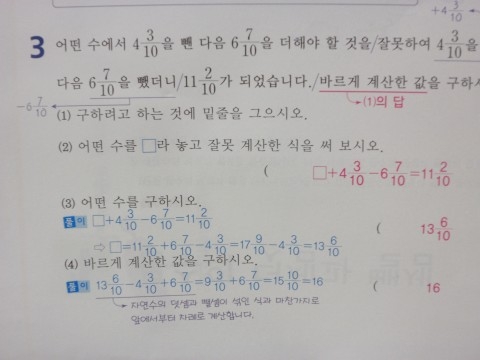 +4 3/10
3 어떤 수에서 4 3/10을 뺀 다음 6 7/10을 더해야 할 것을/잘못하여 4 3/10을
다음 6 7/10을 뺐더니/11 2/10가 되었습니다./바르게 계산한 값을 구하시
-6 7/10
(1)의 답
(1) 구하려고 하는 것에 밑줄을 그으시오.
(2) 어떤 수를 □라 놓고 잘못 계산한 식을 써 보시오.
( □+4 3/10-6 7/10=11 2/10
(3) 어떤 수를 구하시오.
풀이 □+4 3/10-6 7/10=11 2/10
⇨ □=11 2/10+6 7/10-4 3/10=17 9/10-4 3/10=13 6/10
( 13 6/10
(4) 바르게 계산한 값을 구하시오.
풀이 13 6/10-4 3/10+6 7/10=9 3/10+6 7/10=15 10/10=16
( 16
자연수의 덧셈과 뺄셈이 섞인 식과 마찬가지로
앞에서부터 차례로 계산합니다.